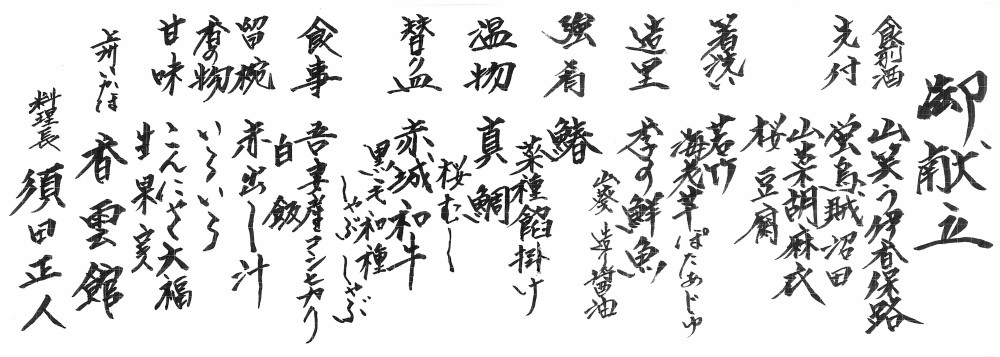 御献立
食前酒
山笑う伊香保路
先付
蛍烏賊沼田
山菜胡麻衣
桜豆腐
箸洗い
若竹
海老真丈ぽたあじゅ
造里
季の鮮魚
山葵 造り醤油
強肴
鰆
菜種餡掛け
温物
真鯛
桜むし
替り皿
赤城和牛
黒毛和種
しゃぶしゃぶ
食事
吾妻産コシヒカリ
白飯
留椀
赤出し汁
香の物
いろいろ
甘味
こんにゃく大福
生果実
上州いかほ
香雲館
料理長
須田正人